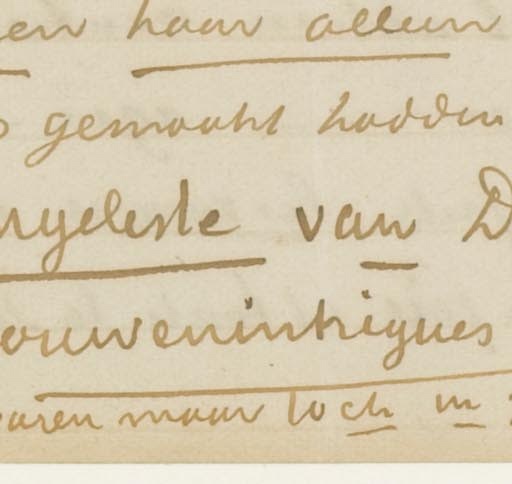 en haar alleen
gemaakt hadden
van D
ouwenintrigues
aren maar toch in